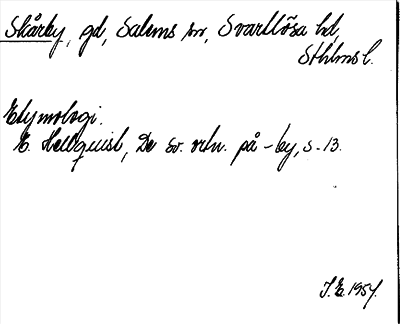 Skårby, gd, Salems sn, Svartlösa hd,
Sthlms l.
Etymologi.
E. Hellquist, De sv. ortn. på -by, s. 13.
J.E. 1954.